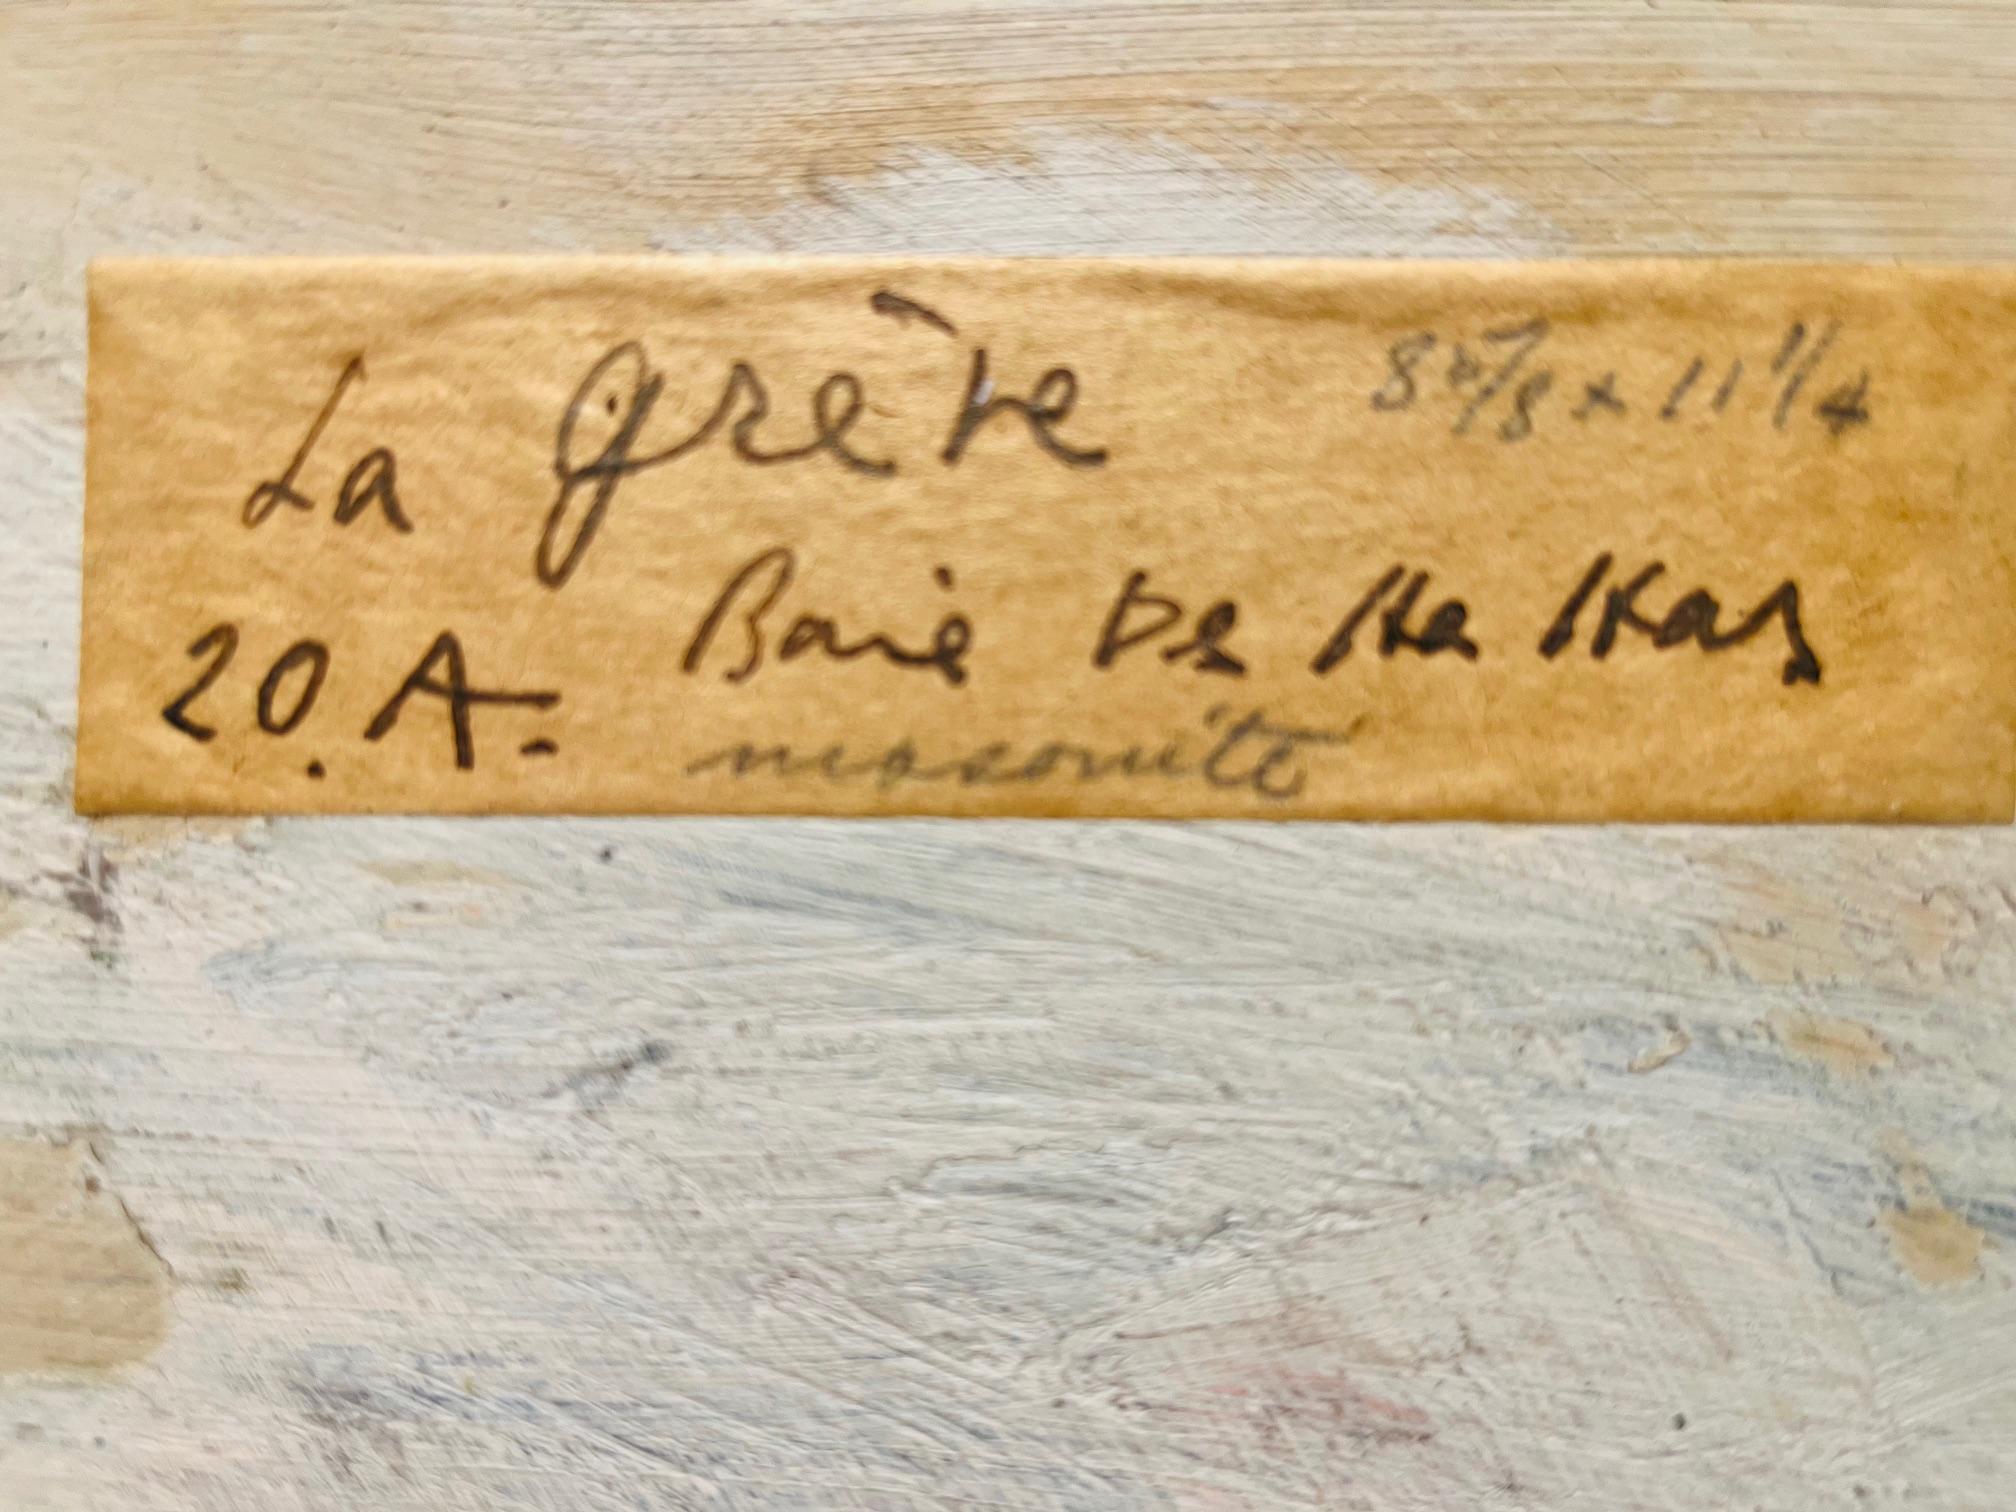 La grève 8 5/8 x 11 1/4
20.A. Baie De
masonite